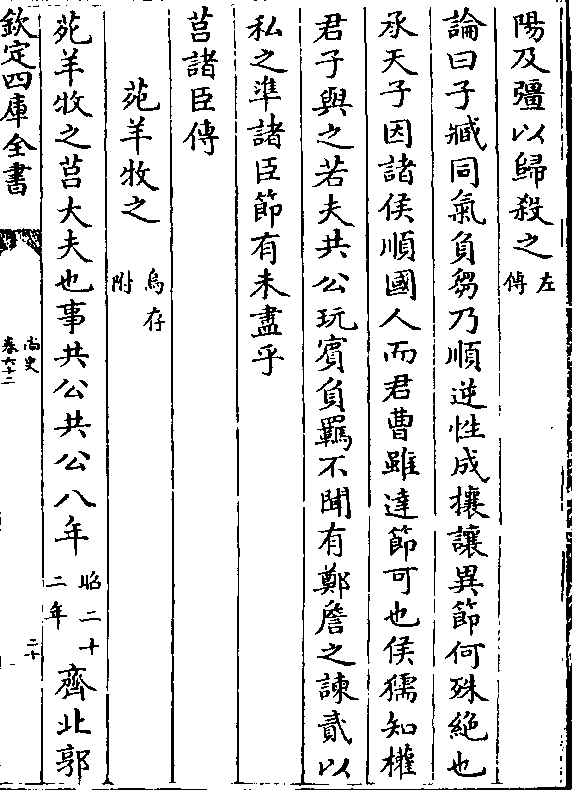 陽及彊以歸殺之左傳
論曰子臧同氣負芻乃順逆性成攘讓異節何殊絶也
承天子因諸侯順國人而君曹雖達節可也侯獳知權
君子與之若夫共公玩賓負羈不聞有鄭詹之諫貳以
私之準諸臣節有未盡乎
莒諸臣傳
苑羊牧之烏存附
苑羊牧之莒大夫也事共公共公八年昭二十二年齊北郭
欽定四庫全書
尚史
卷六十二
二十